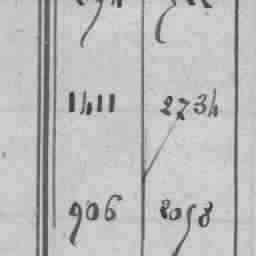 1411 2734
906 2058